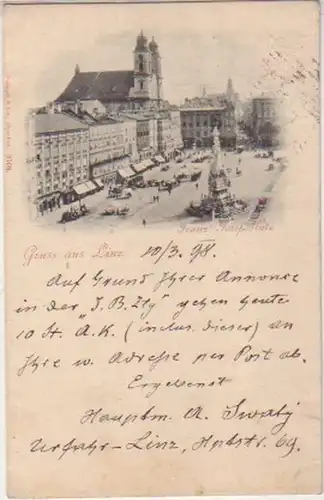 Franz Josef-Platz
Gruss aus Linz 10/3. 98.
Auf Grund Ihrer Annonce
in der "I. B. Ztg" gehen heute
10 St. A.K. (inclus. dieser) an
Ihre w. Adresse per Post ab.
Ergebenst
Hauptm. A. Swaty
Urfahr-Linz, Hptstr. 69.